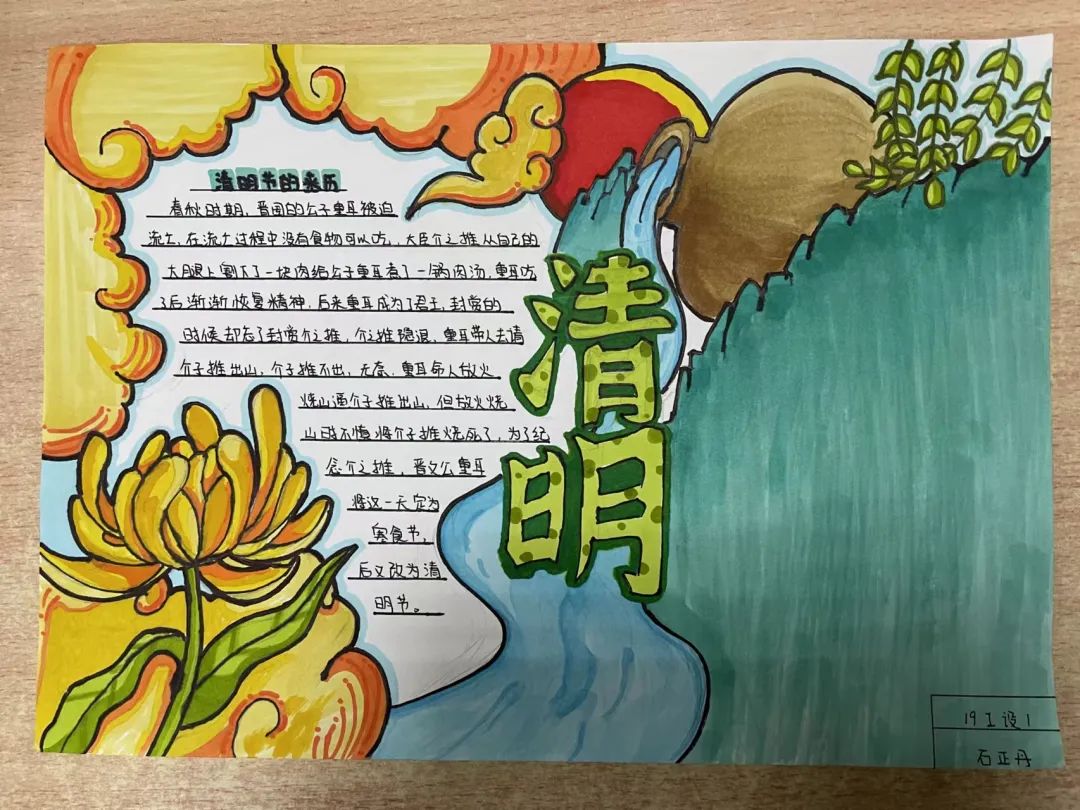 清明节的来历
春秋时期，晋国的公子重耳被迫
流亡，在流亡过程中没有食物可以吃，大臣介之推从自己的
大腿上割下了一块肉给公子重耳煮了一锅肉汤，重耳吃
了后渐渐恢复精神，后来重耳成为了君主，封赏的
时候却忘了封赏介之推，介之推隐退，重耳带人去请
介子推出山，介子推不出，无奈，重耳命人放火
烧山逼介子推出山，但放火烧
山时不慎将介子推烧死了，为了纪
念介之推，晋文公重耳
将这一天定为
寒食节，
后又改为清
明节。
清
明
19工设1
石正丹